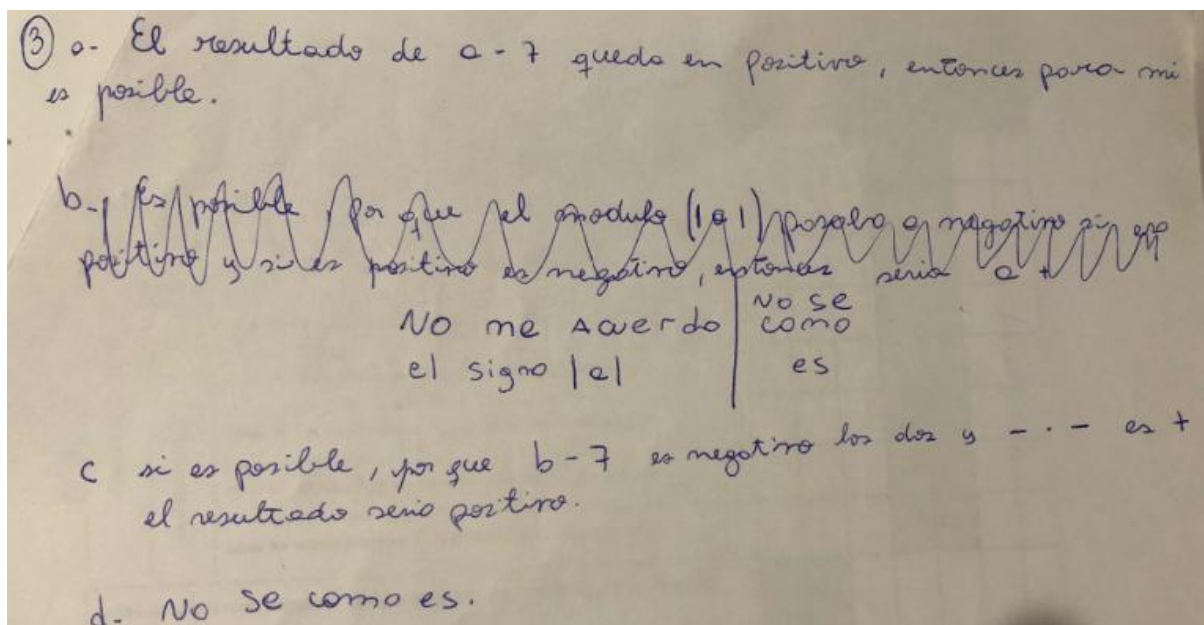 ③ a- El resultado de a - 7 queda en positivo, entonces para mi
es posible.
b- Es posible, por que el modulo (|a|) pasaba a negativo si era
positivo y si es positivo es negativo, entonces seria a +
No me Acuerdo | No se
el signo |a| | como
es
c si es posible, por que b-7 es negativo los dos y - . - es +
el resultado serio positivo.
d- No se como es.